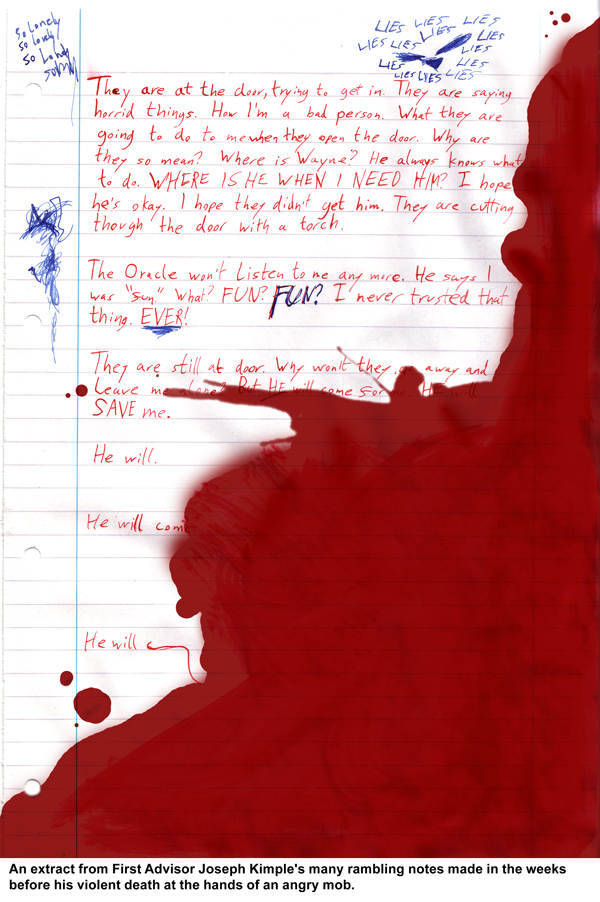 So Lonely
so lonely
so Lonely
LIES LIES LIES
LIES LIES LIES LIES
LIES LIES LIES
LIES LIES LIES
They are at the door, trying to get in. They are saying
horrid things. How I'm a bad person. What they are
going to do to me when they open the door. Why are
they so mean? Where is Wayne? He always knows what
to do. WHERE IS HE WHEN I NEED HIM? I hope
he's okay. I hope they didn't get him. They are cutting
though the door with a torch.
The Oracle won't listen to me any more. He says I
was "fun." What? FUN? FUN? I never trusted that
thing. EVER!
They are still at door. Why won't they go away and
Leave me alone? But HE will come for me. He will
SAVE me.
He will.
He will come
He will
An extract from First Advisor Joseph Kimple's many rambling notes made in the weeks
before his violent death at the hands of an angry mob.